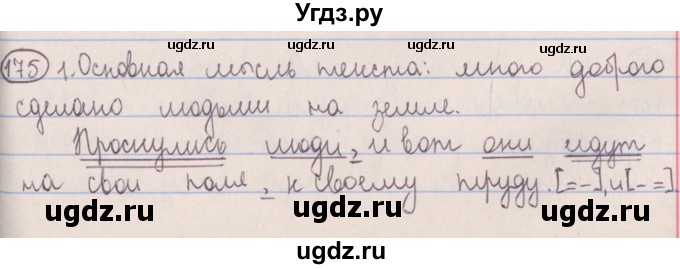 Угдз.ру
175 1. Основная мысль текста: много доброго
сделано людьми на земле.
Проснулись люди, и вот они идут
на свои поля, к своему труду. [= -], и [- =].
ugdz.ru ugdz.ru ugdz.ru
ugdz.ru ugdz.ru
ugdz.ru ugdz.ru ugdz.ru
ugdz.ru